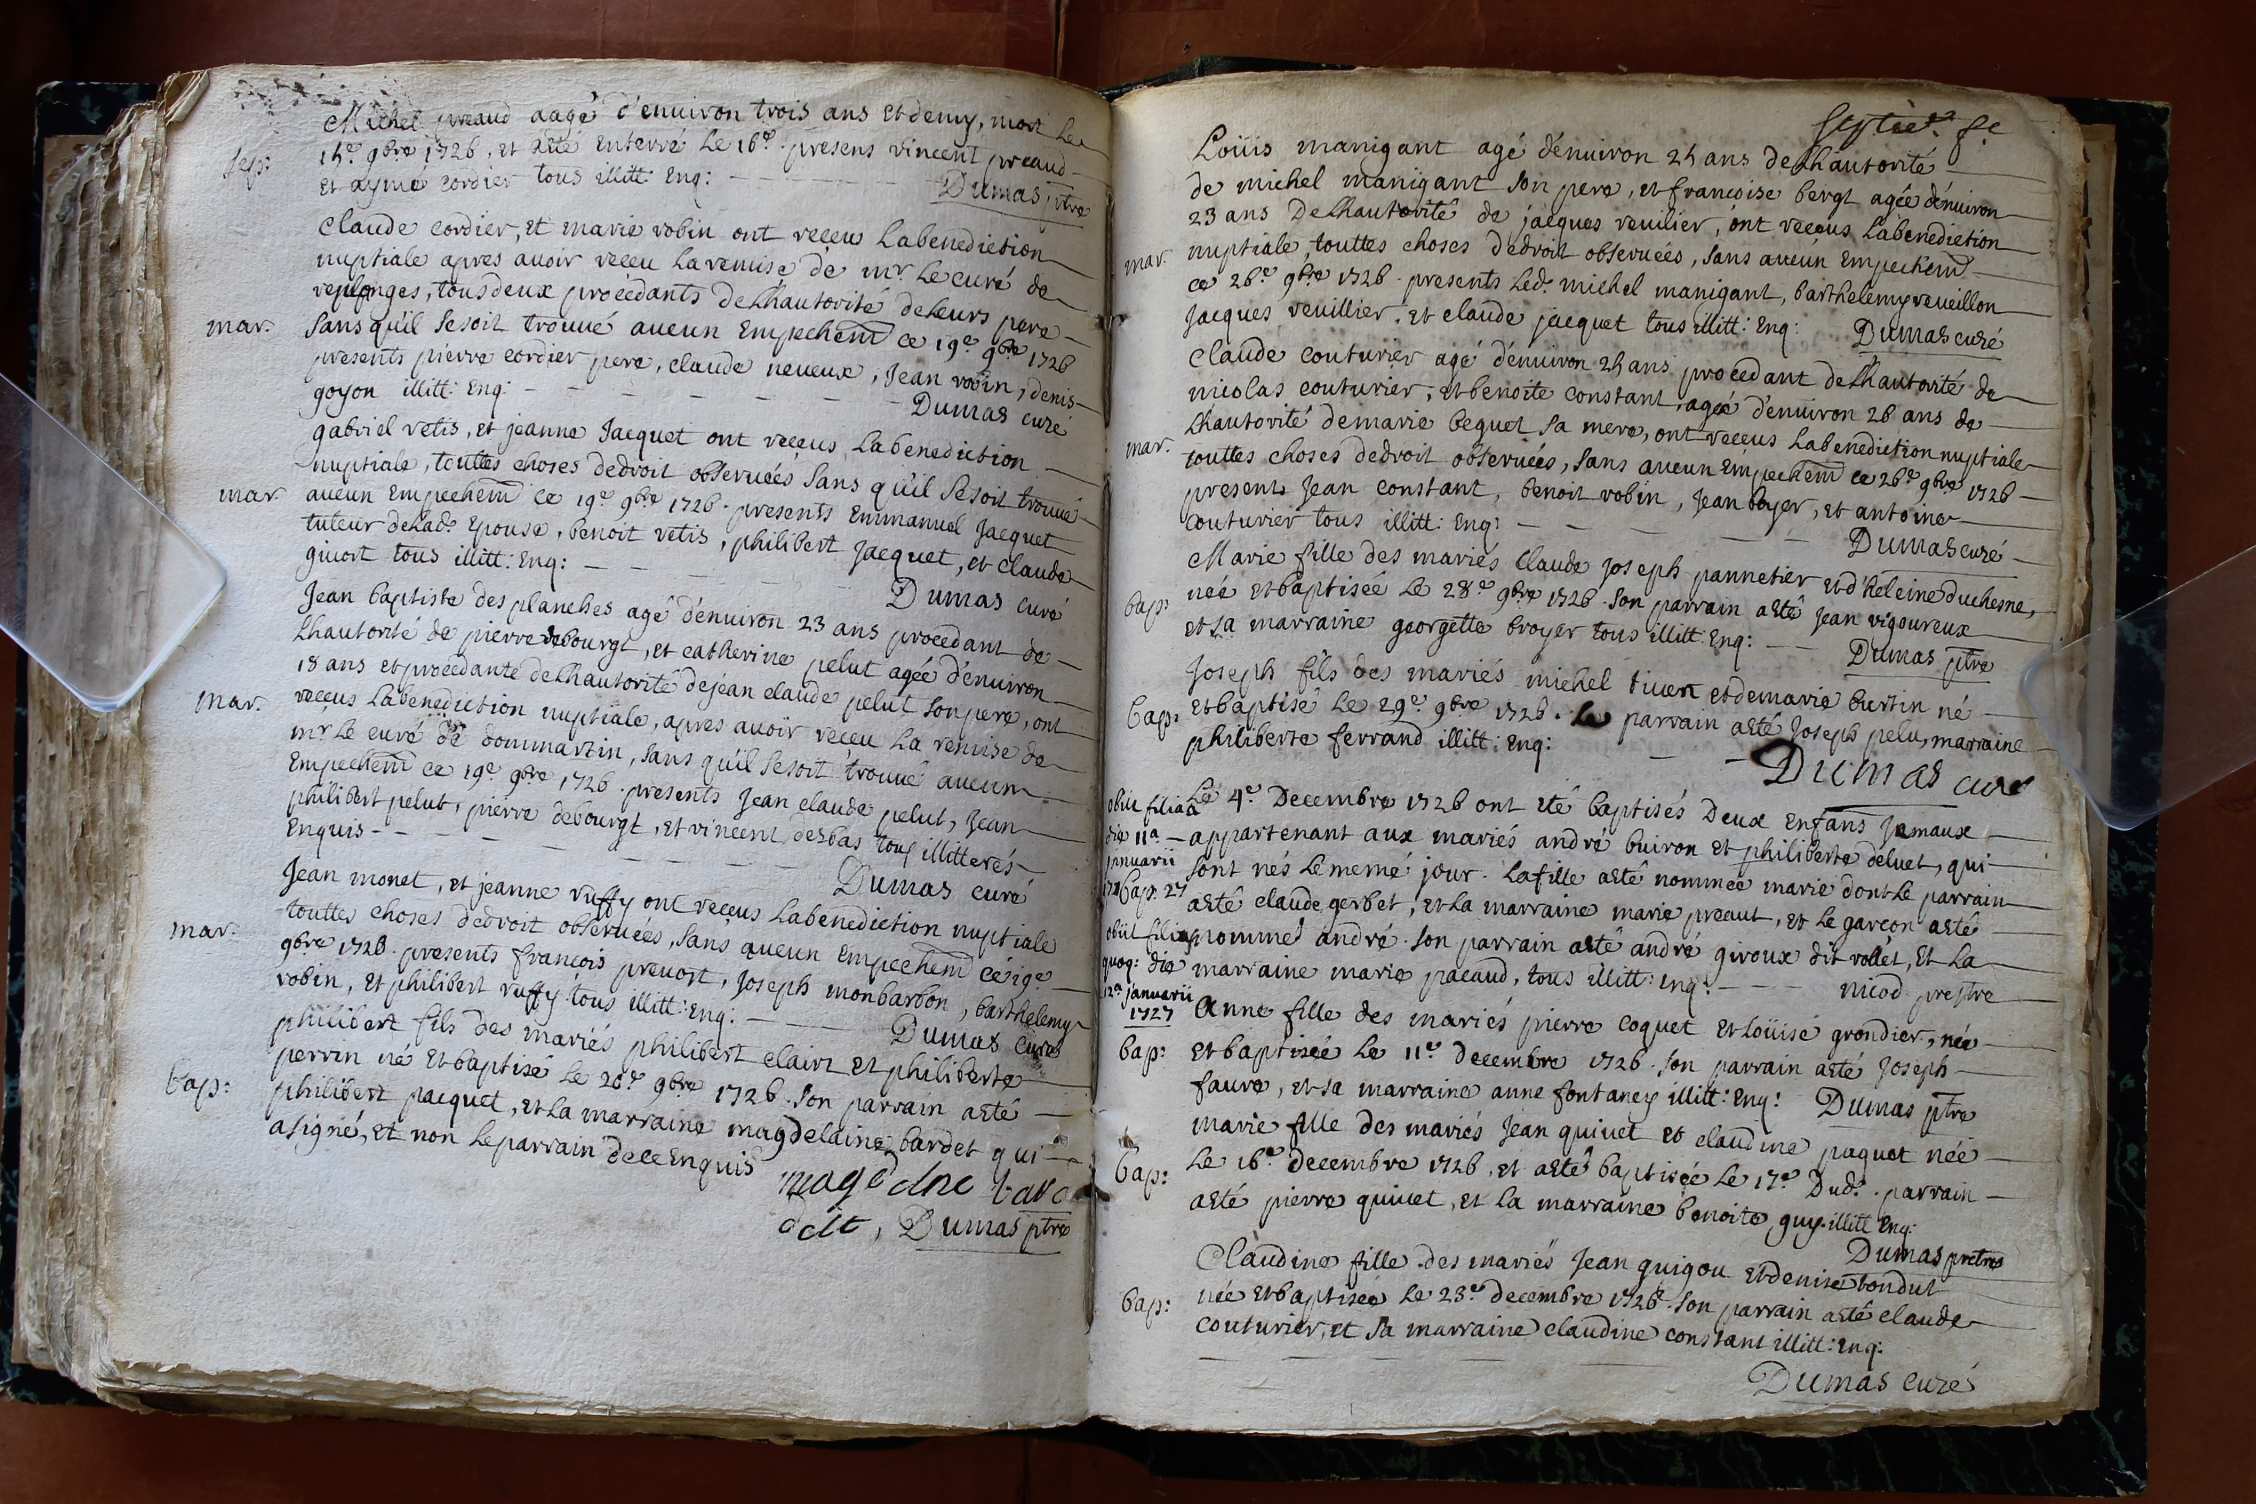 Michel preaud aagé d'enuiron trois ans et demy, mort le
sep:
15e 9bre 1726, et a été enterré le 16e. presens vincent preaud
et aymé cordier tous illitt: enq:
Dumas ptre
claude cordier, et marie robin ont reçeu la benediction
nuptiale apres auoir reçeu la remise de mr le curé de
replonges, tous deux procédants de l'hautorité de leurs pere
mar.
sans qu'il se soit trouué aucun empechem ce 19e 9bre 1726
presents pierre cordier pere, claude neueux, Jean robin, denis
goyon illitt: enq:
Dumas curé
gabriel vetis, et jeanne Jacquet ont reçeus la benediction
nuptiale, touttes choses dedroit obseruéés sans qu'il se soit trouué
mar
aucun empechem ce 19e 9bre 1726. presents Emmanuel Jacquet
tuteur de lade Epouse, benoit vetis, philibert Jacquet, et claude
giuort tous illitt: enq:
Dumas curé
Jean baptiste des planches agé d'enuiron 23 ans procedant de
Lhautorité de pierre debourgt, et catherine pelut agéé d'énuiron
18 ans et procedante de Lhautorité de jean claude pelut son pere, ont
mar.
reçeus La benediction nuptiale, apres auoir reçeu La remise de
mr Le curé de dommartin, sans qu'il se soit trouué aucun
Empechem ce 19e 9bre 1726. presents Jean claude pelut, Jean
philibert pelut, pierre debourgt, et vincent desbas tous illitterés
Enquis
Dumas curé
Jean monet, et jeanne ruffy ont reçeus La benediction nuptiale
touttes choses dedroit obseruéés, sans aucun Empechem ce 19e
mar.
9bre 1726. presents francois preuost, Joseph monbarbon, barthelemy
robin, et philibert ruffy tous illitt: enq:
Dumas curé
philibert fils des mariés philibert clairt et philiberte
perrin né et baptisé le 20e 9bre 1726. son parrain a eté
bap:
philibert pacquet, et La marraine magdelaine bardet qui
a signé, et non le parrain de ce enquis
magdelne bar
dett, Dumas ptre
septie. fe
Loüis manigant agé d'énuiron 25 ans de Lhautorité
de michel manigant son pere, et francoise bergt agée d'énuiron
23 ans de Lhautorité de jacques reuilier, ont reçeus La benediction
mar.
nuptiale, touttes choses dedroit obseruéés, sans aucun Empechem
ce 26e 9bre 1726. presents Led. michel manigant, barthelemy reueillon
Jacques reuillier, et claude jacquet tous illitt: Enq: Dumas curé
Claude couturier agé d'énuiron 25 ans procedant de Lhautorité de
nicolas couturier, et benoite constant, agéé d'énuiron 26 ans de
Lhautorité de marie bequet sa mere, ont reçeus La benediction nuptiale
mar.
touttes choses dedroit obseruéés, sans aucun Empechem ce 26e 9bre 1726
presents Jean constant, benoit robin, Jean boyer, et antoine
couturier tous illitt: Enq:
Dumas curé
Marie fille des mariés Claude Joseph pannetier et d'heleine duchesne,
bap:
néé et baptiséé Le 28e 9bre 1726. son parrain a eté Jean vigoureux
et sa marraine georgette broyer tous illitt: Enq:
Dumas ptre
Joseph fils des mariés michel tiuen et de marie burtin né
bap:
et baptisé Le 29e 9bre 1726. Le parrain a eté Joseph pelu, marraine
philiberte ferrand illitt: Enq:
Dumas curé
obiit filia
die 11a
januarii
bap: 27
Le 4e Decembre 1726 ont eté baptisés Deux Enfans Jemaux
appartenant aux mariés andré buiron et philiberte deluet, qui
sont nés Le meme jour. La fille a eté nommeé marie dont Le parrain
a eté claude gerbet, et La marraine marie preaut, et Le garçon a eté
obiit filius
quoq: die
12a januarii
1727
nommé andré. son parrain a eté andré giroux dit rollet, Et La
marraine marie pacaud, tous illitt: Enq: nicod prestre
Anne fille des mariés pierre coquet et Loüise grondier, néé
bap:
et baptiséé Le 11e decembre 1726. son parrain a eté Joseph
faure, et sa marraine anne fontaney illitt: Enq: Dumas ptre
marie fille des mariés Jean quiuet et claudine paquet néé
Bap:
Le 16e decembre 1726, et a eté baptiséé Le 17e Dud. parrain
a eté pierre quiuet, et La marraine benoite guy illitt Enq:
Dumas pretre
Claudine fille des mariés Jean guigou et denise tondut
bap:
néé et baptiséé Le 23e decembre 1726. son parrain a eté claude
couturier, et sa marraine claudine constant illitt: Enq:
Dumas curé